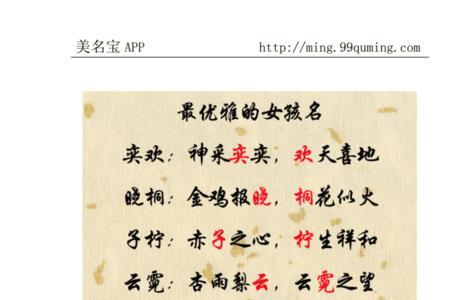 美名宝 APP http://ming.99quming.com
最优雅的女孩名
奕欢：神采奕奕，欢天喜地
晓桐：金鸡报晓，桐花似火
子柠：赤子之心，柠生祥和
云霓：杏雨梨云，云霓之望